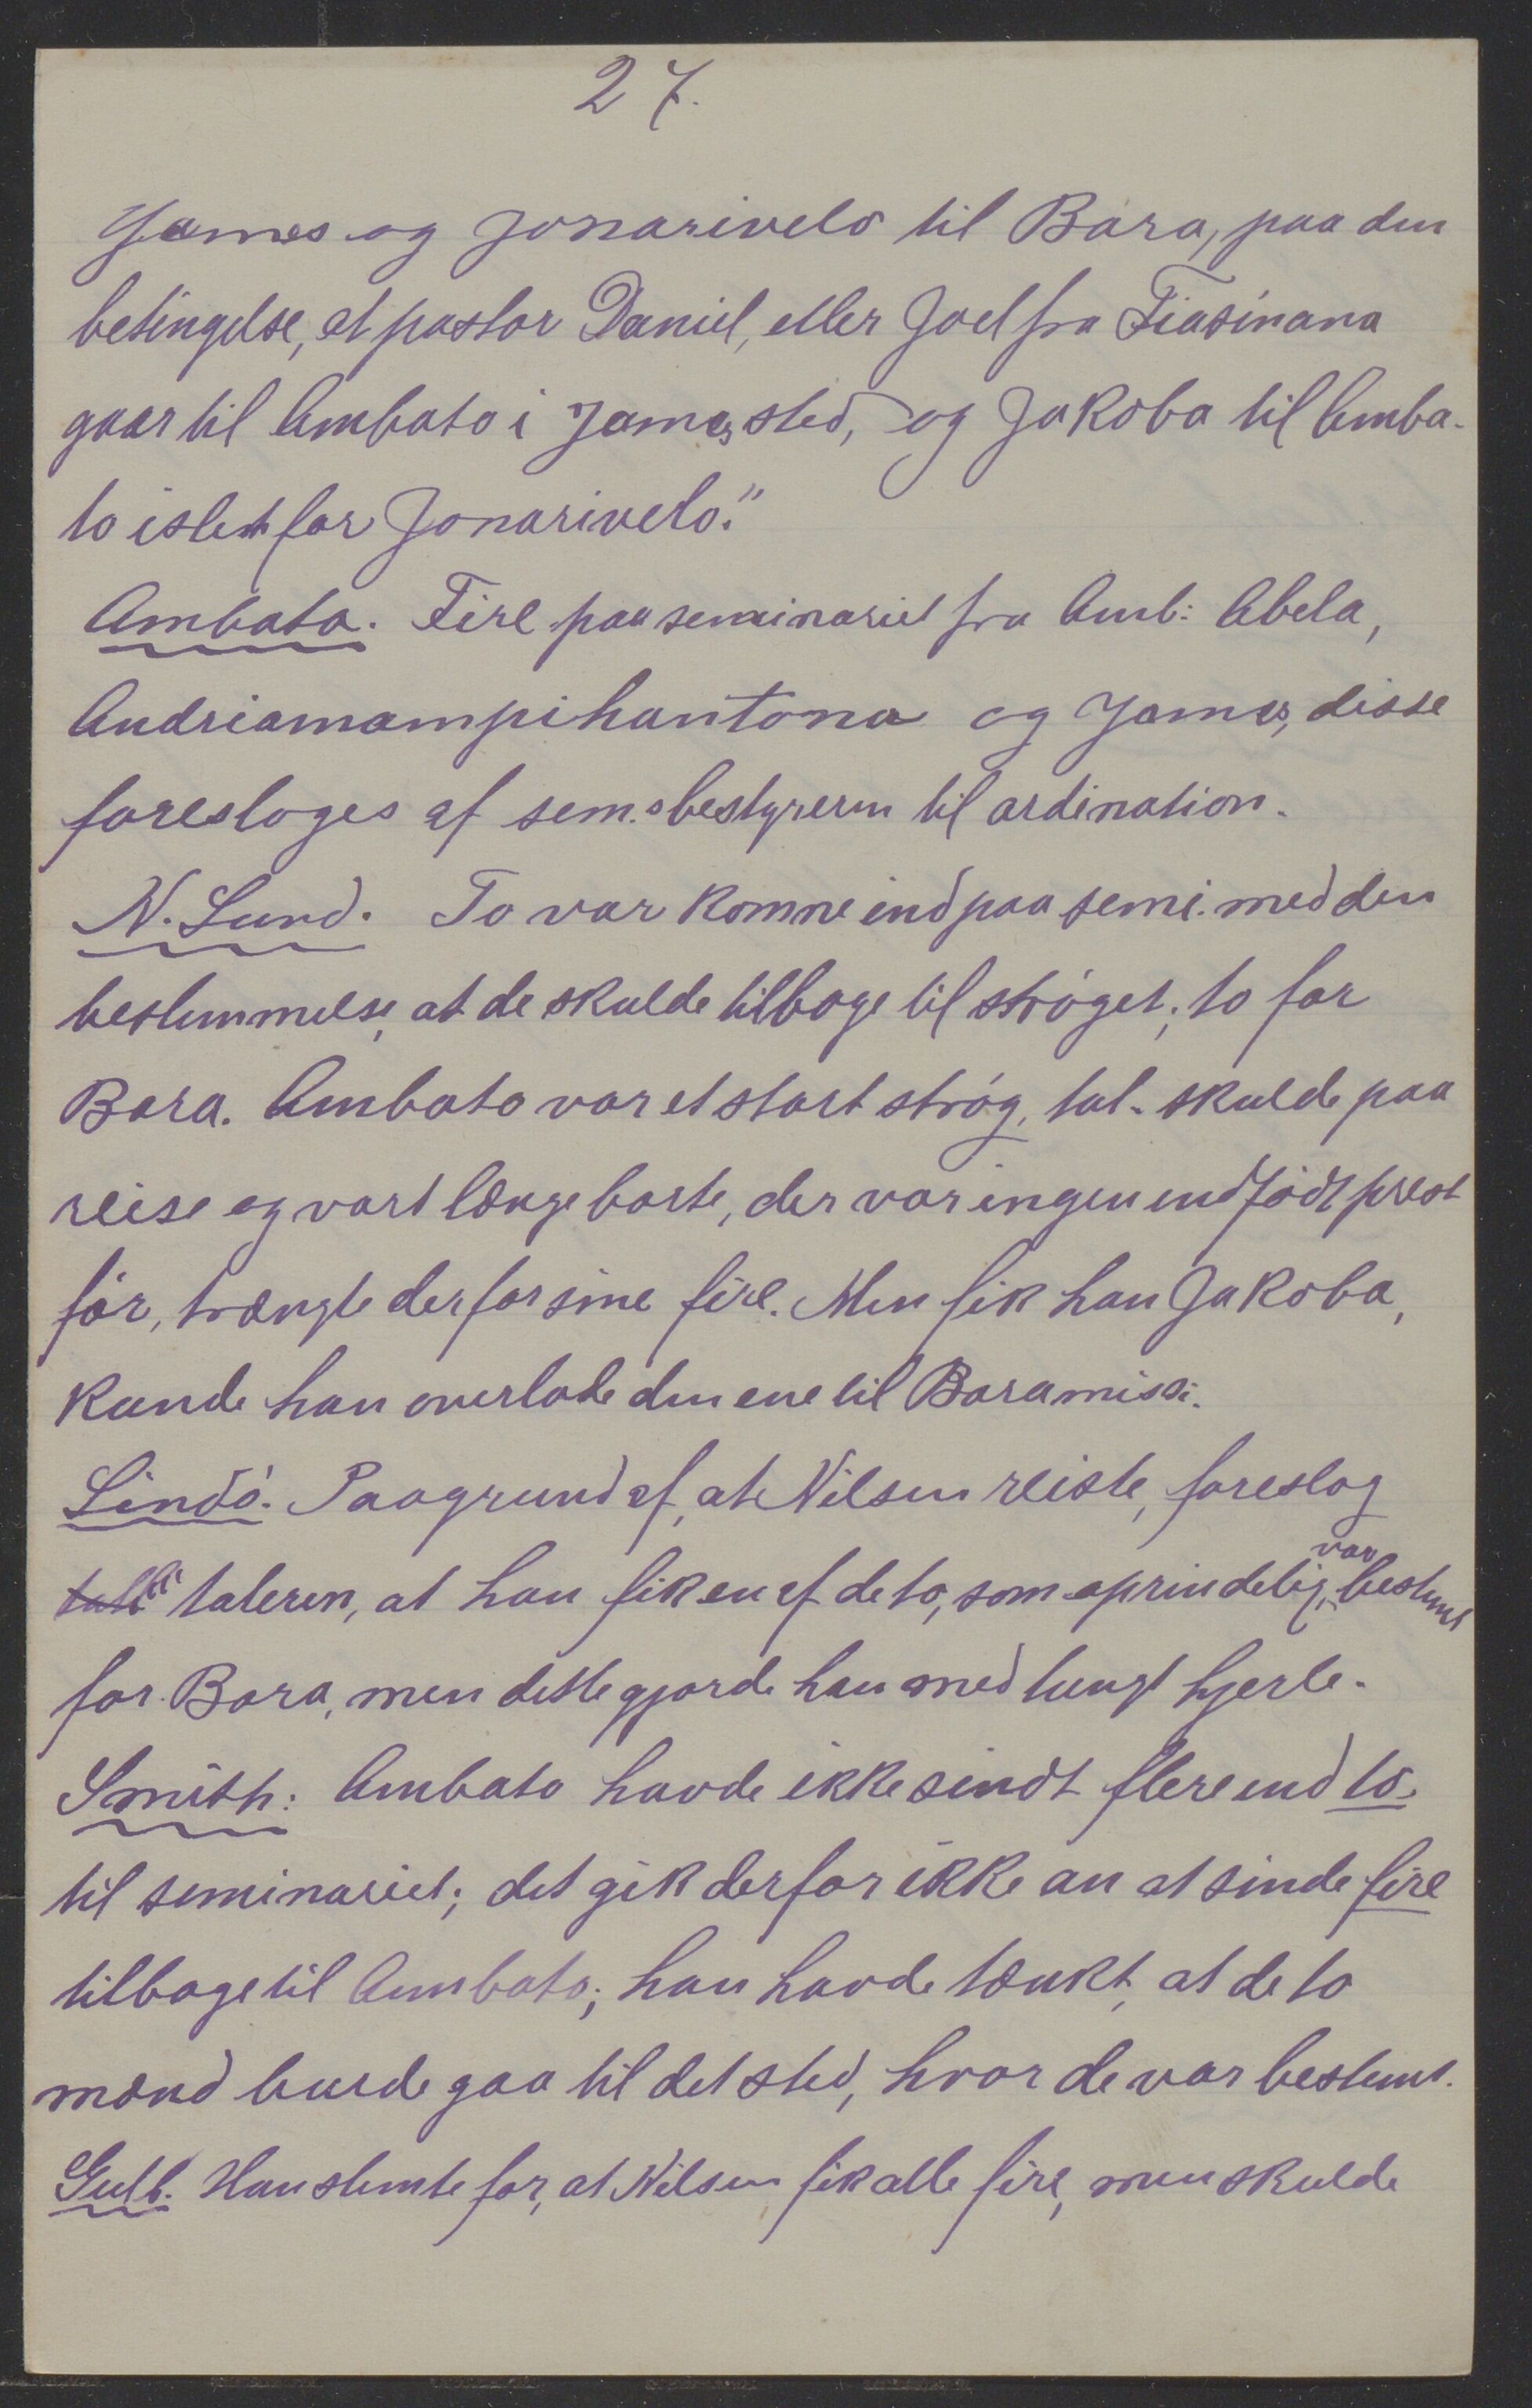 27.
James og Jonarivelo til Bara, paa den
betingelse, at pastor Daniel, eller Joel fra Fiasinana
gaar til Ambato i James sted, og Jakoba til Amba-
to istedt for Jonarivelo."
Ambato. Fire paa seminariet fra Amb: Abela,
Andriamampihantona og James, disse
foresloges af sem.sbestyreren til ordination.
N. Lund. To var komne ind paa semi. med den
bestemmelse, at de skulde tilbage til strøget; to for
Bara. Ambato var et stort strøg, tal. skulde paa
reise og vart længe borte, der var ingen indfødt prest
før, trængte derfor sine fire. Men fik han Jakoba,
kunde han overlade den ene til Baramiss.
Lindø. Paa grund af, at Nilsen reiste, foreslog
taleren, at han fik en af de to, som oprindelig var bestemt
for Bara, men dette gjorde han med tungt hjerte.
Smith: Ambato havde ikke sendt flere end to
til seminariet; det gik derfor ikke an at sende fire
tilbage til Ambato; han havde tænkt, at de to
mænd burde gaa til det sted, hvor de var bestemt.
Gulb. Han stemte for, at Nilsen fik alle fire, men skulde